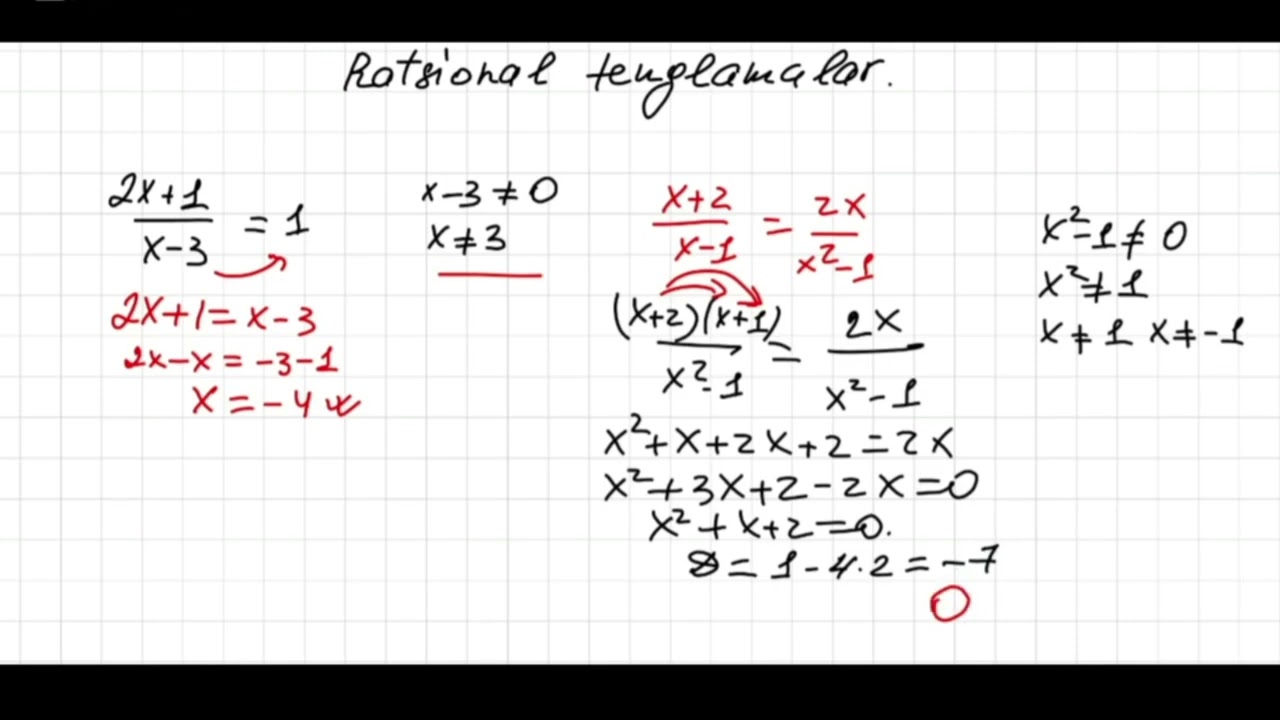 Ratsional tenglamalar.
(2x+1)/(x-3) = 1
x-3 ≠ 0
x ≠ 3
2x+1 = x-3
2x-x = -3-1
x = -4
(x+2)/(x-1) = 2x/(x²-1)
(x+2)(x+1)/(x²-1) = 2x/(x²-1)
x²+x+2x+2 = 2x
x²+3x+2-2x = 0
x²+x+2 = 0.
D = 1-4·2 = -7
x²-1 ≠ 0
x² ≠ 1
x ≠ 1 x ≠ -1